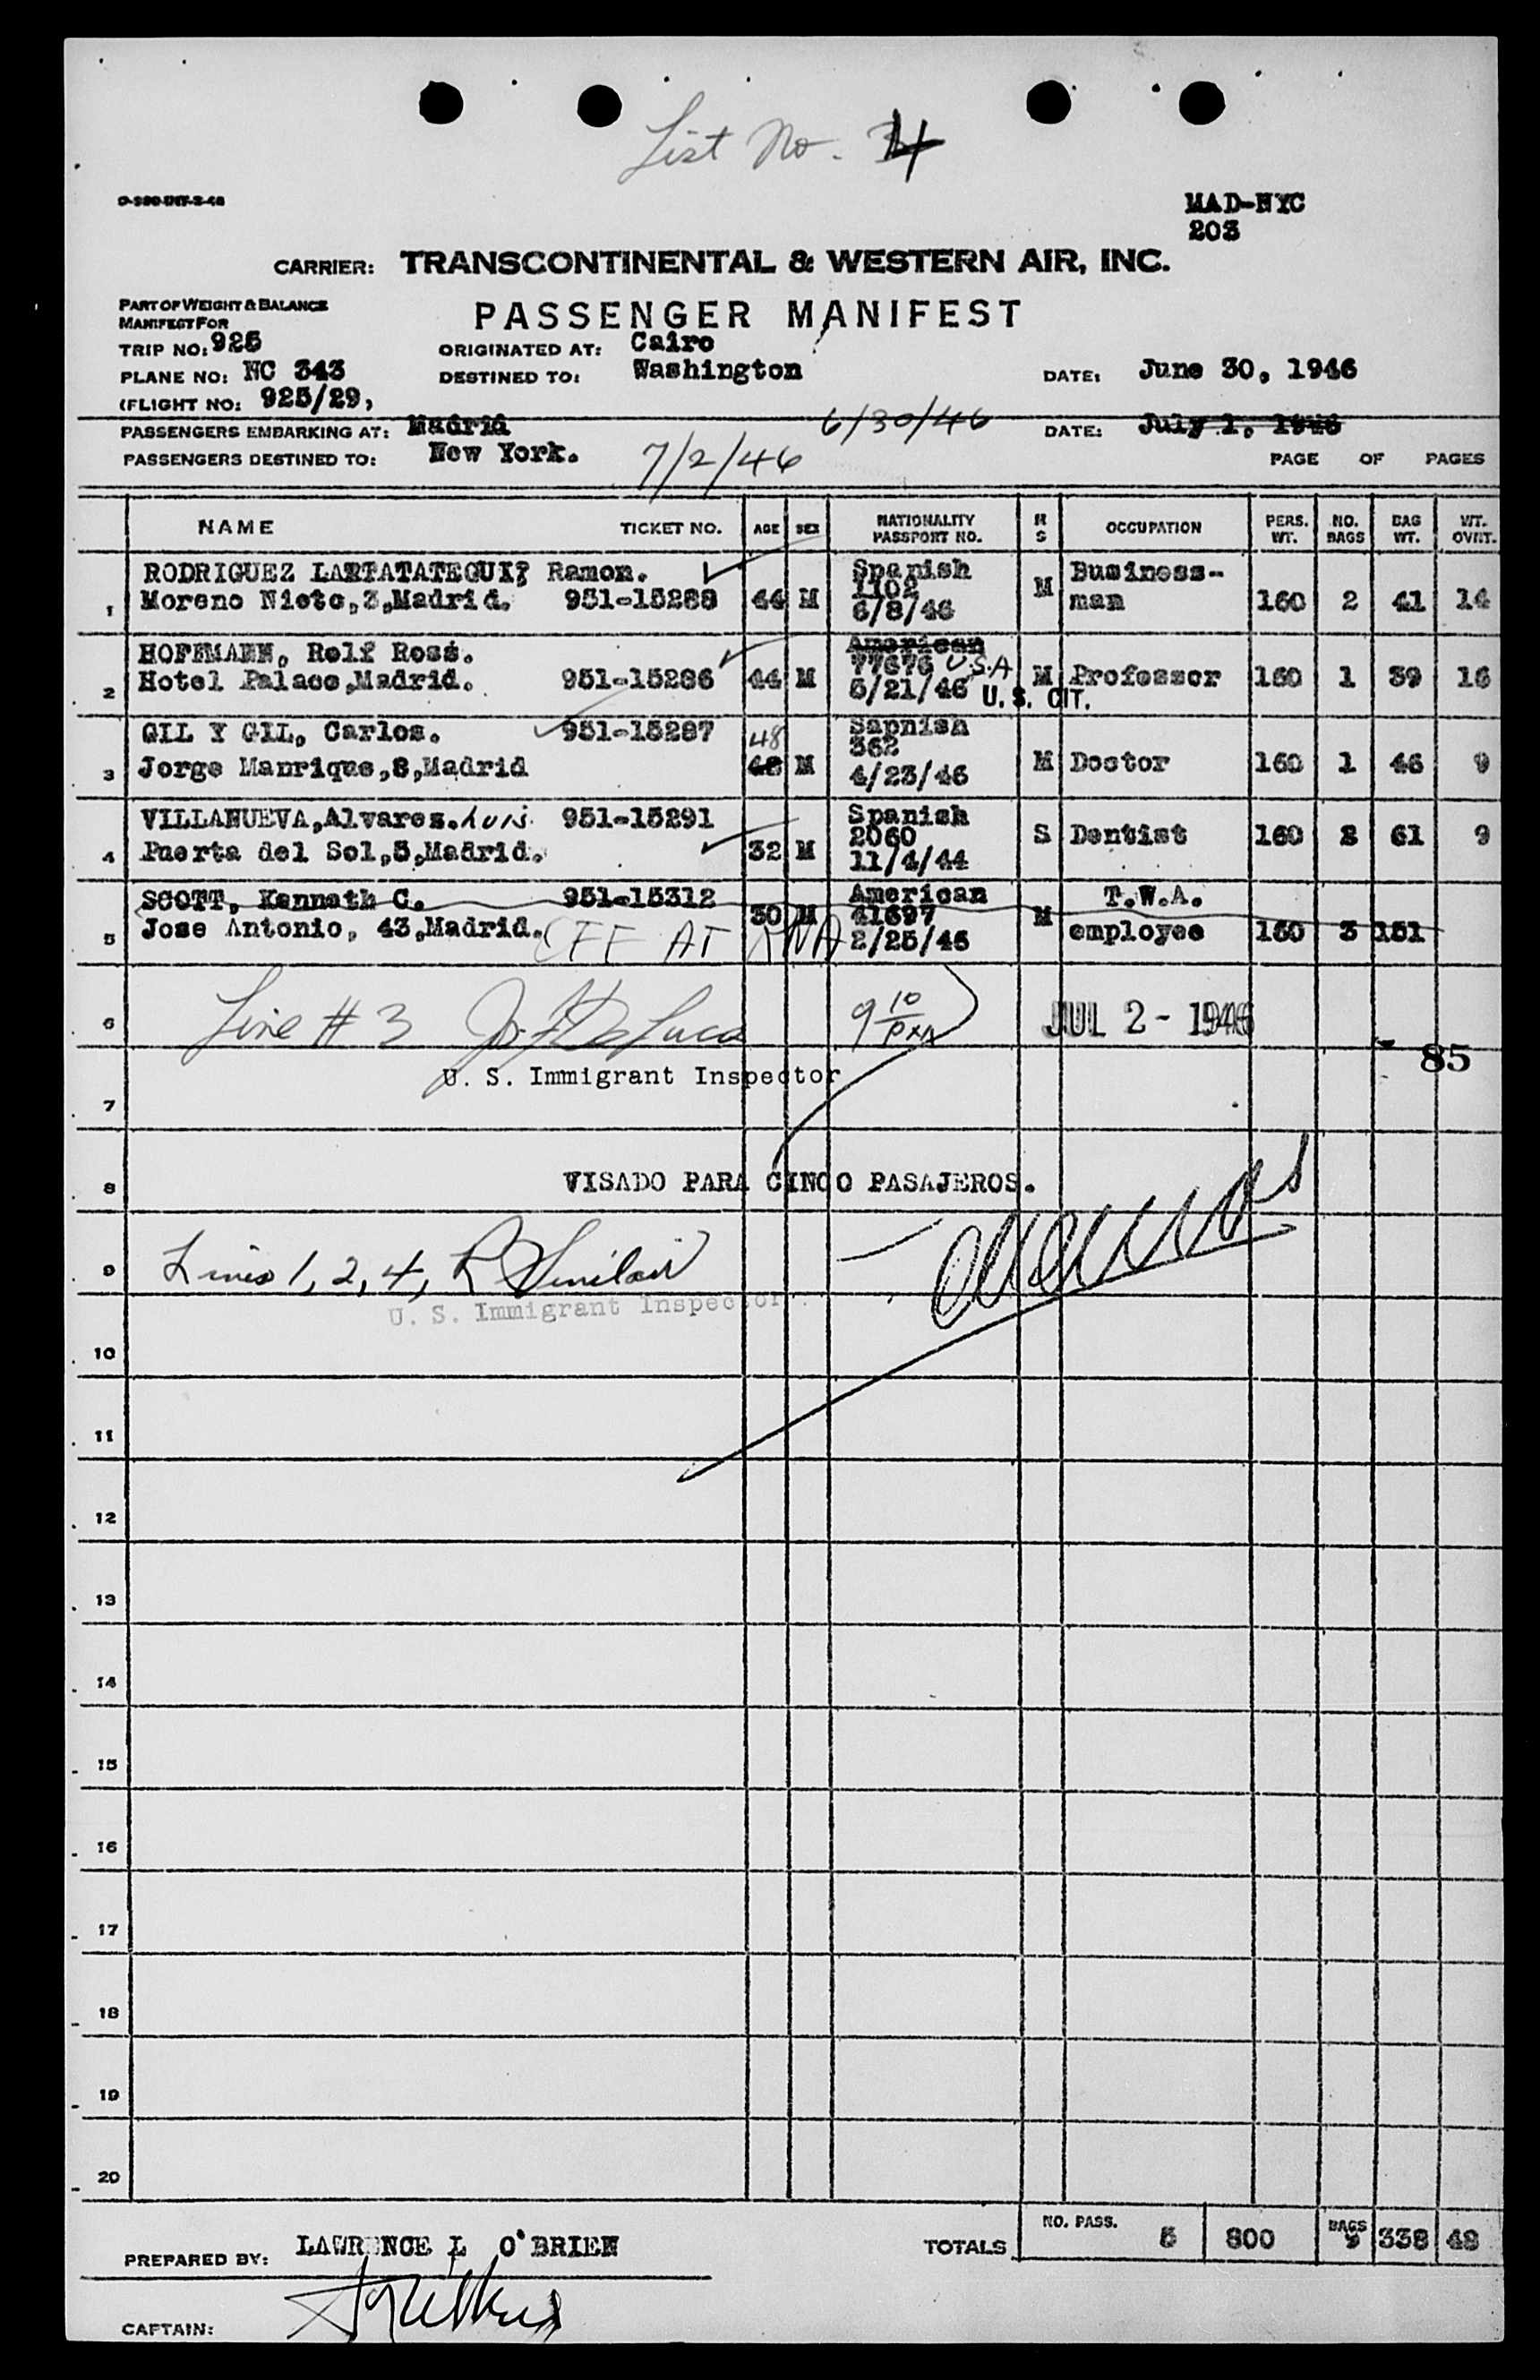 List No. 4
O-980-INT-2-46
MAD-NYC
203
CARRIER: TRANSCONTINENTAL & WESTERN AIR, INC.
PART OF WEIGHT & BALANCE
MANIFEST FOR
PASSENGER MANIFEST
TRIP NO: 925 ORIGINATED AT: Cairo
PLANE NO: NC 343 DESTINED TO: Washington DATE: June 30, 1946
(FLIGHT NO: 925/29,
PASSENGERS EMBARKING AT: Madrid 6/30/46 DATE: July 1, 1946
PASSENGERS DESTINED TO: New York. 7/2/46 PAGE OF PAGES
NAME TICKET NO. AGE SEX NATIONALITY PASSPORT NO. M S OCCUPATION PERS. WT. NO. BAGS BAG WT. WT. OVNT.
RODRIGUEZ LARTATATEGUI, Ramon. Spanish Business-
1 Moreno Nieto,3,Madrid. 951-15288 44 M 1102 M man 160 2 41 14
6/8/46
HOFFMANN, Rolf Ross. American
2 Hotel Palace,Madrid. 951-15286 44 M 77676 U.S.A M Professor 160 1 39 16
5/21/46 U. S. CIT.
GIL Y GIL, Carlos. 951-15287 48 Sapnish
362
3 Jorge Manrique,8,Madrid 48 M 4/23/46 M Doctor 160 1 46 9
VILLANUEVA,Alvarez. Luis 951-15291 Spanish
2060 S Dentist 160 2 61 9
4 Puerta del Sol,5,Madrid. 32 M 11/4/44
SCOTT, Kenneth C. 951-15312 American T.W.A.
30 M 41697 M
5 Jose Antonio, 43,Madrid. OFF AT 2/25/46 employee 160 3 151
6 Line # 3 Jos. F. DeLuca 9 10 P.M. JUL 2 - 1946
85
U. S. Immigrant Inspector
7
8 VISADO PARA CINCO PASAJEROS.
9 Lines 1, 2, 4, R Sinclair
U. S. Immigrant Inspector
10
11
12
13
14
15
16
17
18
19
20
PREPARED BY: LAWRENCE L O'BRIEN TOTALS NO. PASS. 5 800 BAGS 9 338 48
CAPTAIN: